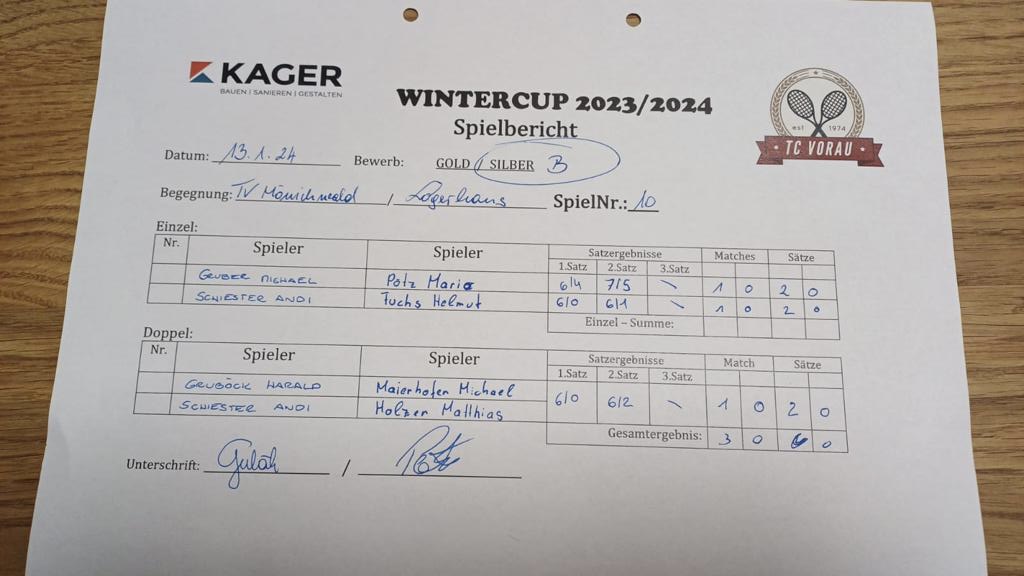 KAGER
BAUEN | SANIEREN | GESTALTEN
WINTERCUP 2023/2024
Spielbericht
est 1974
TC VORAU
Datum: 13.1.24 Bewerb: GOLD / SILBER B
Begegnung: TV Mönichwald / Lagerhaus SpielNr.: 10
Einzel:
Nr. Spieler Spieler Satzergebnisse Matches Sätze
1.Satz 2.Satz 3.Satz
GRUBER MICHAEL Potz Mario 6/4 7/5 \ 1 0 2 0
SCHIESTER ANDI Fuchs Helmut 6/0 6/1 \ 1 0 2 0
Einzel – Summe:
Doppel:
Nr. Spieler Spieler Satzergebnisse Match Sätze
1.Satz 2.Satz 3.Satz
GRUBÖCK HARALD Maierhofer Michael 6/0 6/2 \ 1 0 2 0
SCHIESTER ANDI Holzer Matthias
Gesamtergebnis: 3 0 6 0
Unterschrift: /